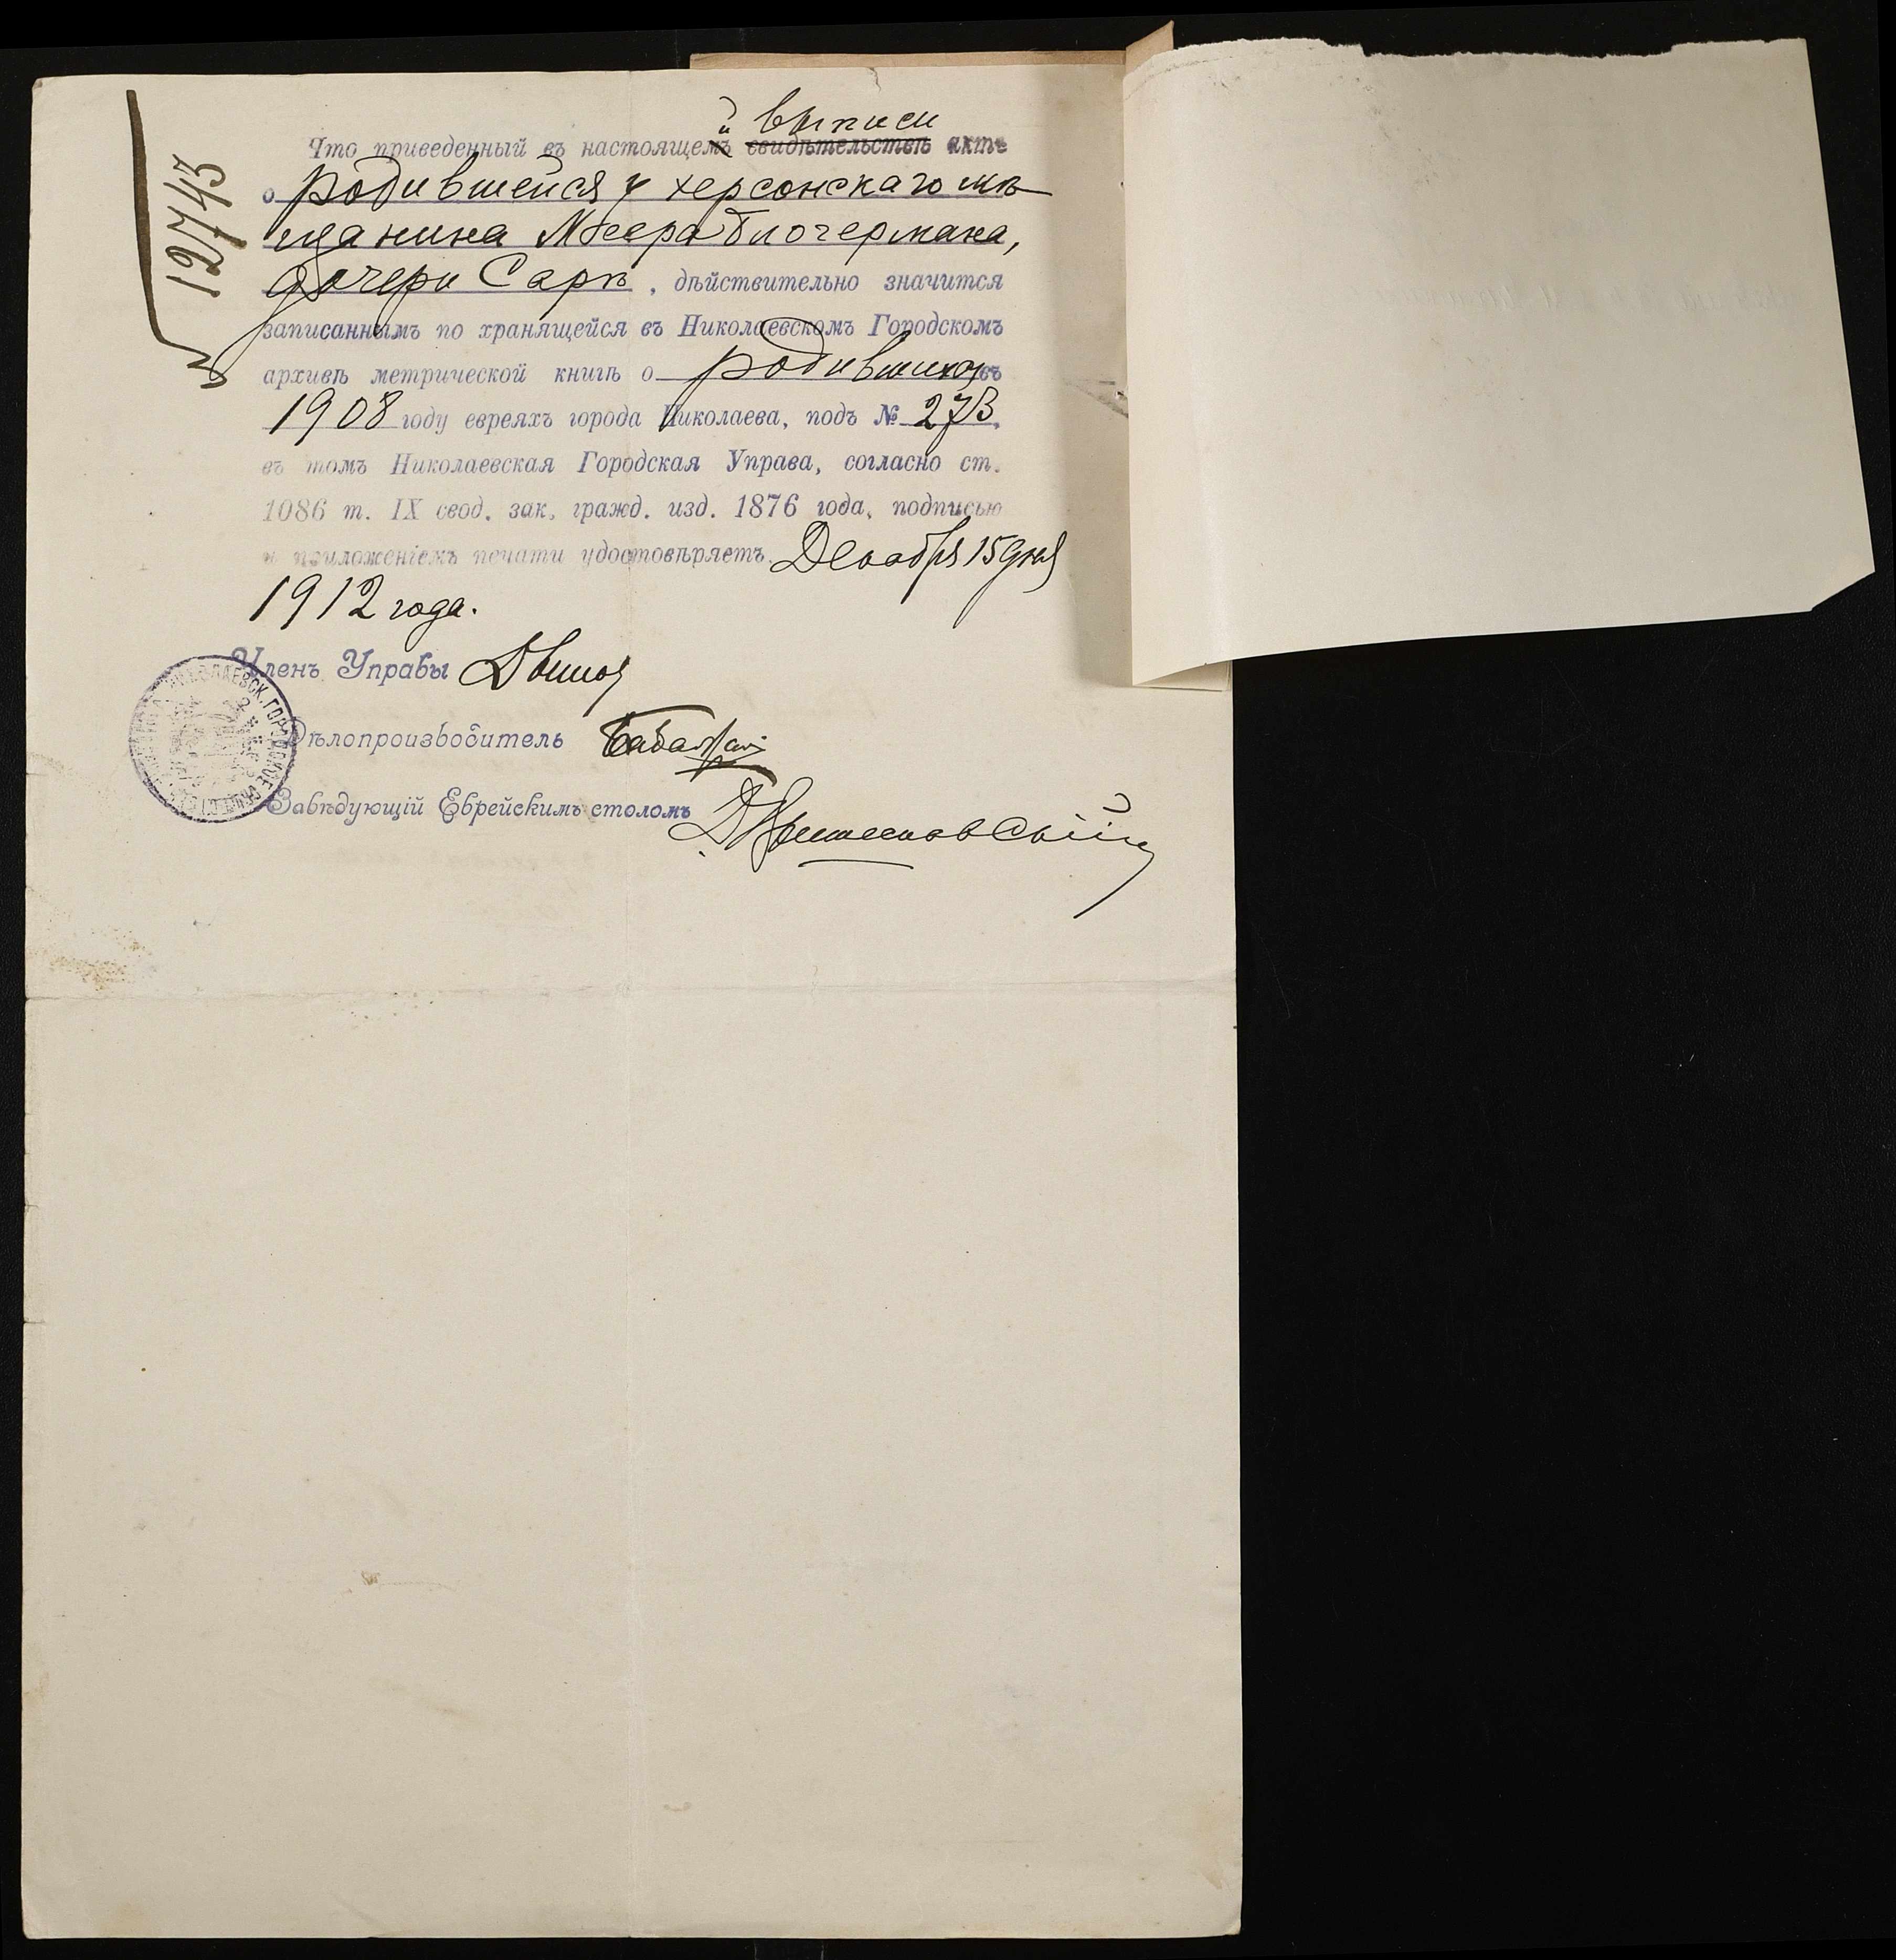 12743
й выписи
Что приведенный въ настоящемъ свидѣтельствѣ актъ
о родившейся у херсонскаго мѣ
щанина Меера Блогермана,
дочери Сарѣ, дѣйствительно значится
записаннымъ по хранящейся въ Николаевскомъ Городскомъ
архивѣ метрической книгѣ о родившихся въ
1908 году евреяхъ города Николаева, подъ № 273,
въ томъ Николаевская Городская Управа, согласно ст.
1086 т. IX свод. зак. гражд. изд. 1876 года, подписью
и приложеніемъ печати удостовѣряетъ. Декабря 15 дня
1912 года.
Членъ Управы
Дѣлопроизводитель
Завѣдующій Еврейскимъ столомъ